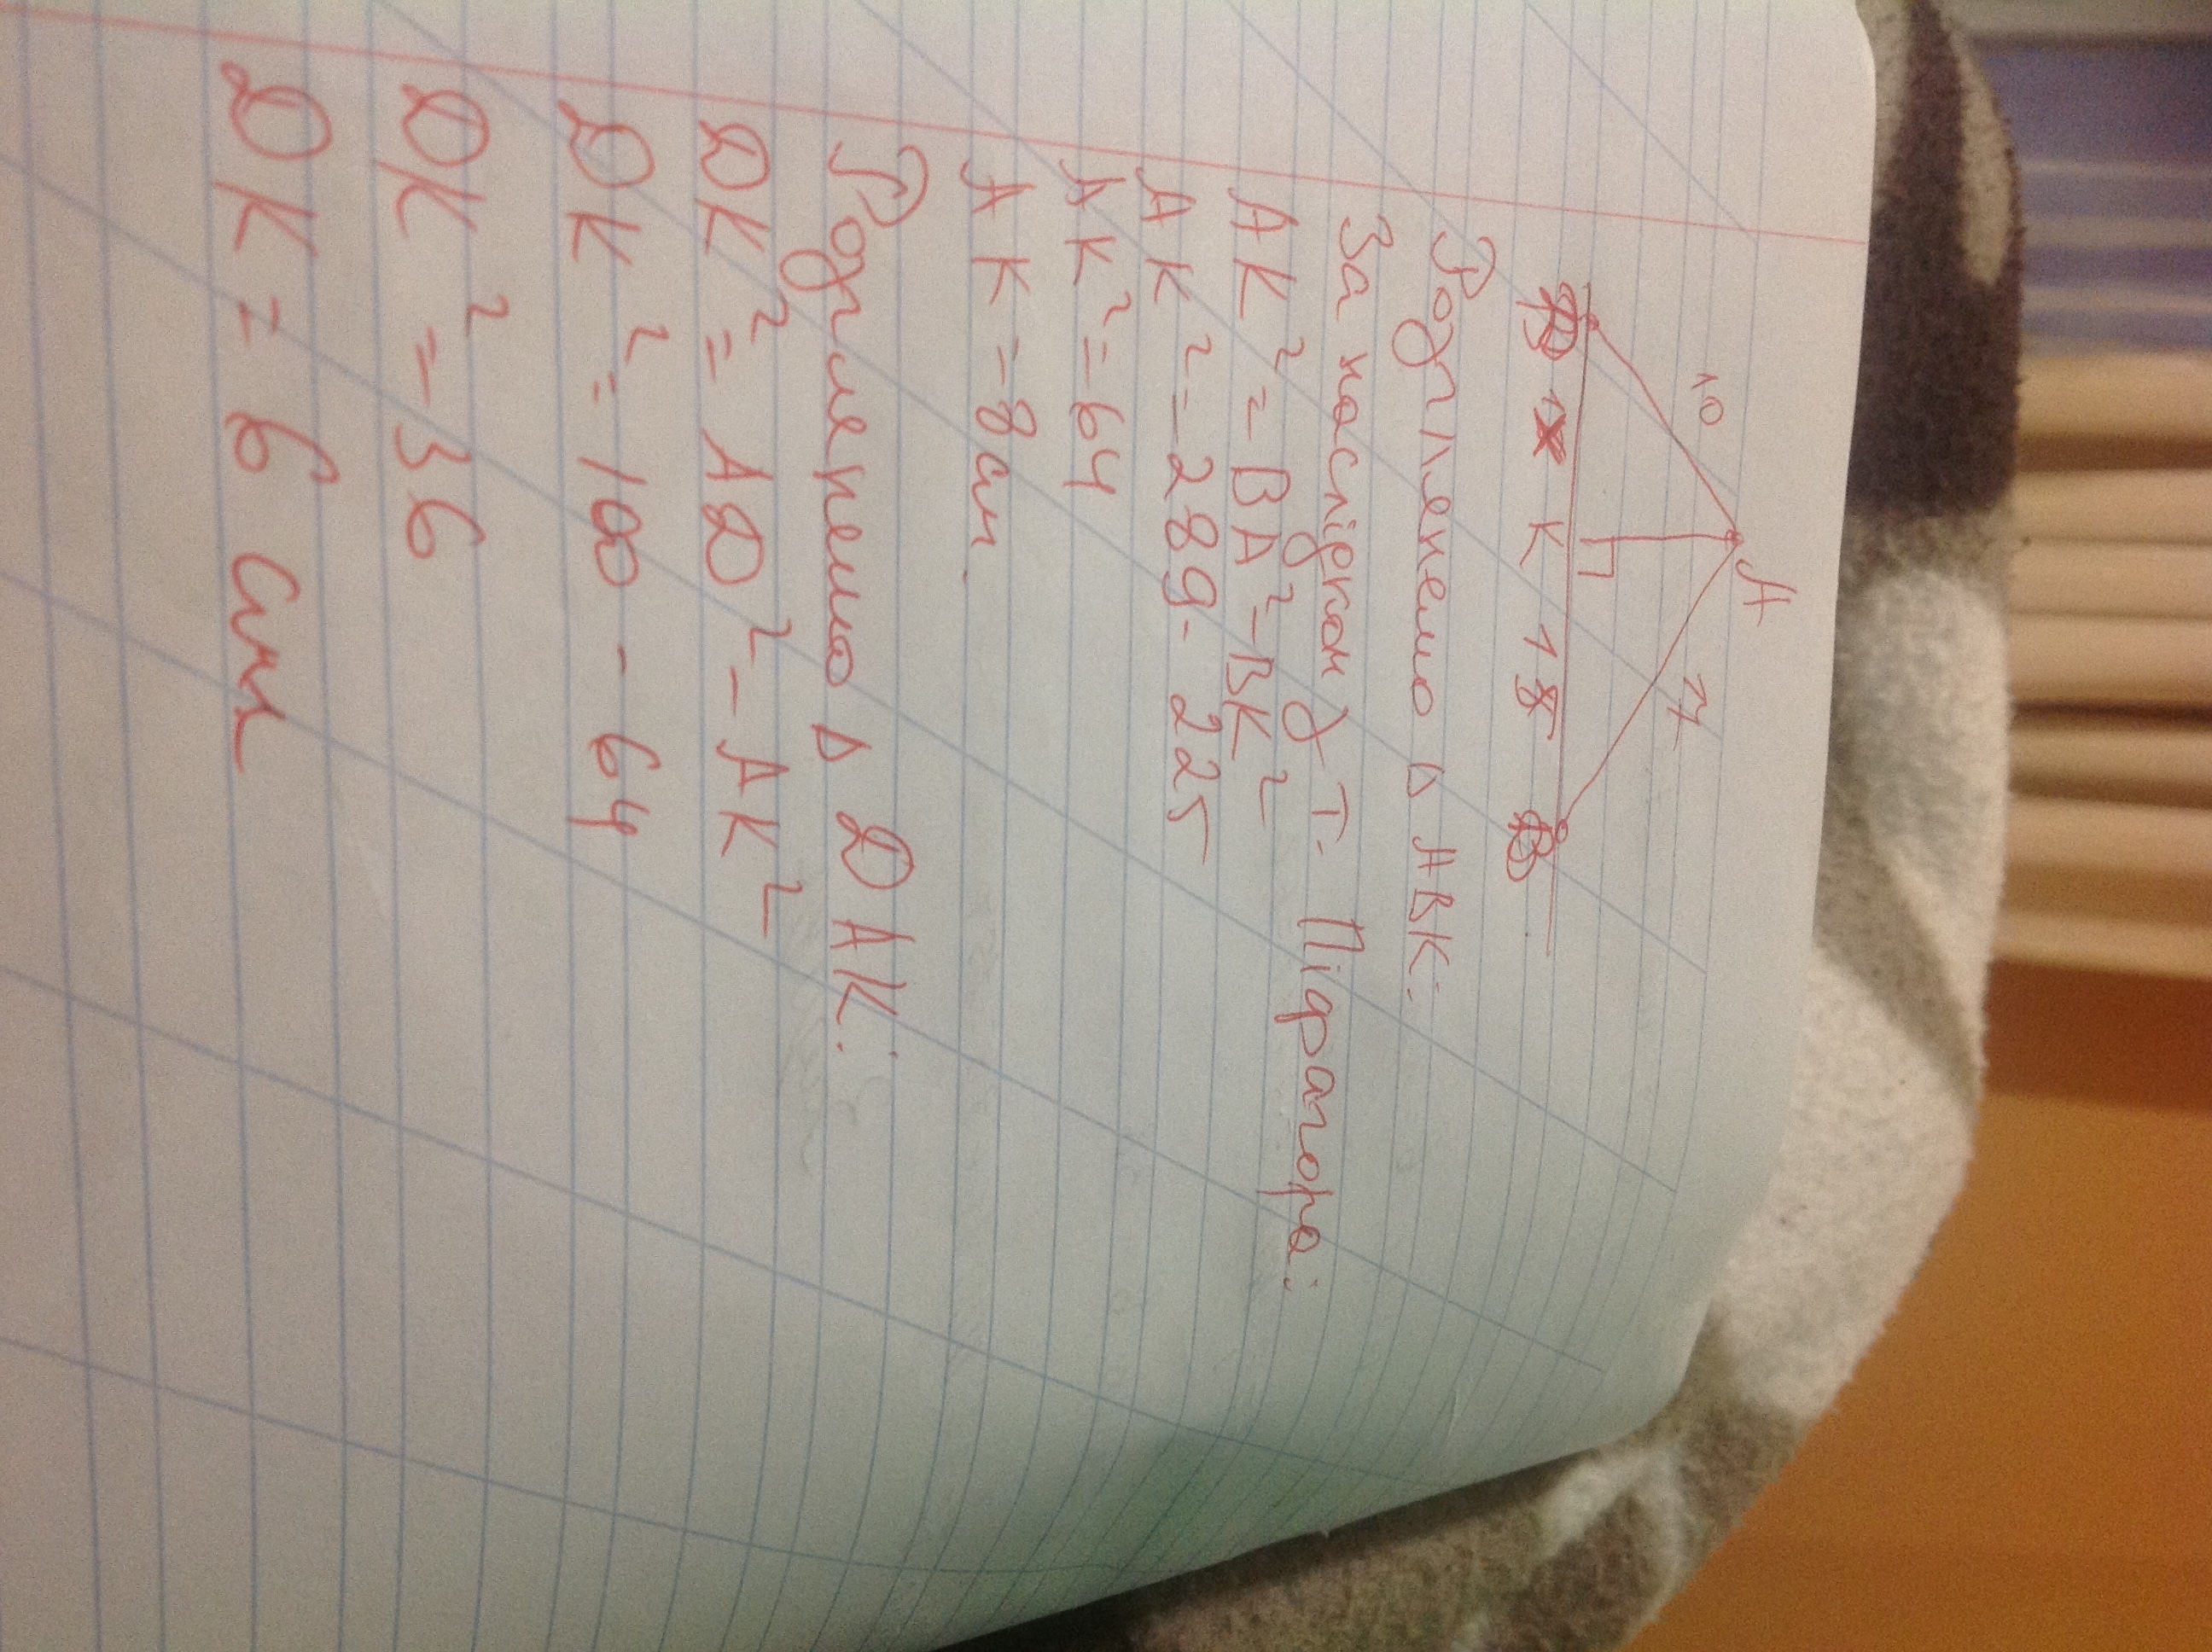 A
10
17
D x K 15 B
Розглянемо Δ ABK:
За наслідком з т. Піфагора:
AK² = BA² - BK²
AK² = 289 - 225
AK² = 64
AK = 8 см.
Розглянемо Δ DAK:
DK² = AD² - AK²
DK² = 100 - 64
DK² = 36
DK = 6 см